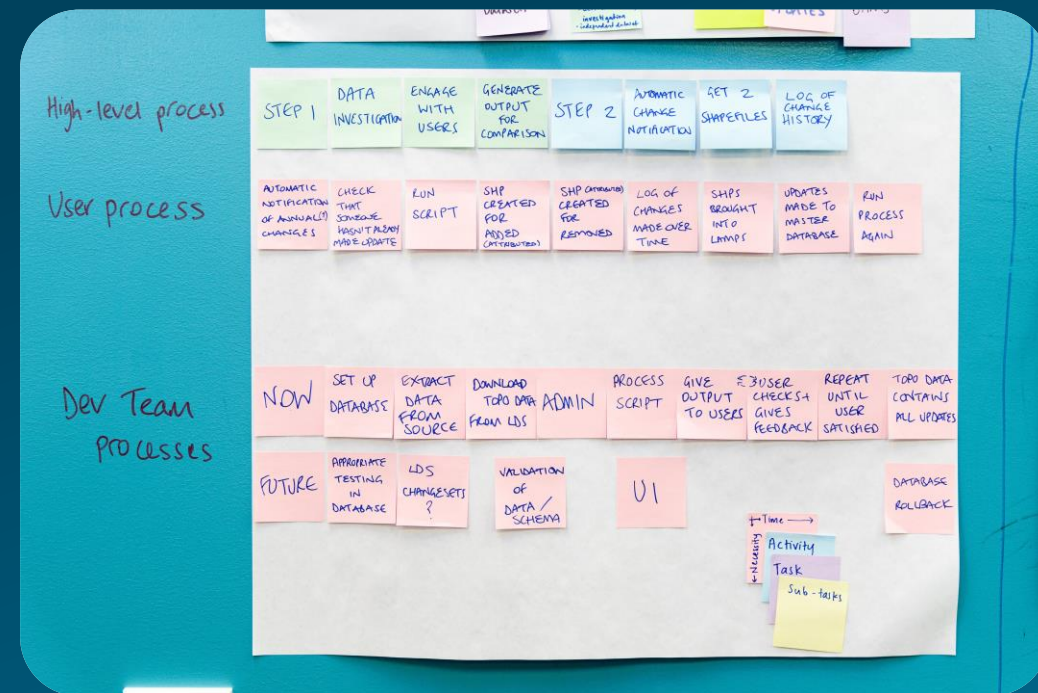 investigation
- independent dataset
High-level process
STEP 1
DATA
INVESTIGATION
ENGAGE
WITH
USERS
GENERATE
OUTPUT
FOR
COMPARISON
STEP 2
AUTOMATIC
CHANGE
NOTIFICATION
GET 2
SHAPEFILES
LOG OF
CHANGE
HISTORY
User process
AUTOMATIC
NOTIFICATION
OF ANNUAL(?)
CHANGES
CHECK
THAT
SOMEONE
HASN'T ALREADY
MADE UPDATE
RUN
SCRIPT
SHP
CREATED
FOR
ADDED
(ATTRIBUTED)
SHP (ATTRIBUTED)
CREATED
FOR
REMOVED
LOG OF
CHANGES
MADE OVER
TIME
SHPS
BROUGHT
INTO
LAMPS
UPDATES
MADE TO
MASTER
DATABASE
RUN
PROCESS
AGAIN
Dev Team
processes
NOW
SET UP
DATABASE
EXTRACT
DATA
FROM
SOURCE
DOWNLOAD
TOPO DATA
FROM LDS
ADMIN
PROCESS
SCRIPT
GIVE
OUTPUT
TO USERS
USER
CHECKS +
GIVES
FEEDBACK
REPEAT
UNTIL
USER
SATISFIED
TOPO DATA
CONTAINS
ALL UPDATES
FUTURE
APPROPRIATE
TESTING
IN
DATABASE
LDS
CHANGESETS
?
VALIDATION
OF
DATA /
SCHEMA
UI
DATABASE
ROLLBACK
Time →
← Necessity
Activity
Task
Sub-tasks